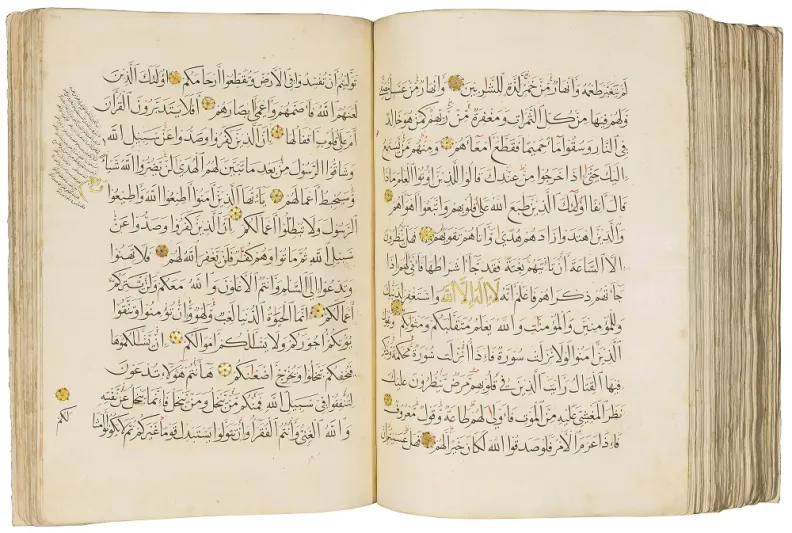 لم يتغير طعمه وانهار من خمر لذة للشاربين وانهار من عسل مصفى
ولهم فيها من كل الثمرات ومغفرة من ربهم كمن هو خالد
في النار وسقوا ماء حميما فقطع امعاءهم ومنهم من يستمع
اليك حتى اذا خرجوا من عندك قالوا للذين اوتوا العلم ماذا
قال آنفا اولئك الذين طبع الله على قلوبهم واتبعوا اهواءهم
والذين اهتدوا زادهم هدى وآتاهم تقويهم فهل ينظرون
الا الساعة ان تاتيهم بغتة فقد جاء اشراطها فانى لهم اذا
جاءتهم ذكراهم فاعلم انه لا اله الا الله واستغفر لذنبك
وللمؤمنين والمؤمنات والله يعلم متقلبكم ومثويكم ويقول
الذين آمنوا لولا نزلت سورة فاذا انزلت سورة محكمة وذكر
فيها القتال رايت الذين في قلوبهم مرض ينظرون اليك
نظر المغشي عليه من الموت فاولى لهم طاعة وقول معروف
فاذا عزم الامر فلو صدقوا الله لكان خيرا لهم فهل عسيتم ان
توليتم ان تفسدوا في الارض وتقطعوا ارحامكم اولئك الذين
لعنهم الله فاصمهم واعمى ابصارهم افلا يتدبرون القرآن
ام على قلوب اقفالها ان الذين كفروا وصدوا عن سبيل الله
وشاقوا الرسول من بعد ما تبين لهم الهدى لن يضروا الله شيئا
وسيحبط اعمالهم يا ايها الذين آمنوا اطيعوا الله واطيعوا
الرسول ولا تبطلوا اعمالكم ان الذين كفروا وصدوا عن
سبيل الله ثم ماتوا وهم كفار فلن يغفر الله لهم فلا تهنوا
وتدعوا الى السلم وانتم الاعلون والله معكم ولن يتركم
اعمالكم انما الحيوة الدنيا لعب ولهو وان تؤمنوا وتتقوا
يؤتكم اجوركم ولا يسئلكم اموالكم ان يسئلكموها
فيحفكم تبخلوا ويخرج اضغانكم ها انتم هؤلاء تدعون
لتنفقوا في سبيل الله فمنكم من يبخل ومن يبخل فانما يبخل عن نفسه
والله الغني وانتم الفقراء وان تتولوا يستبدل قوما غيركم ثم لا يكونوا امثا
لكم